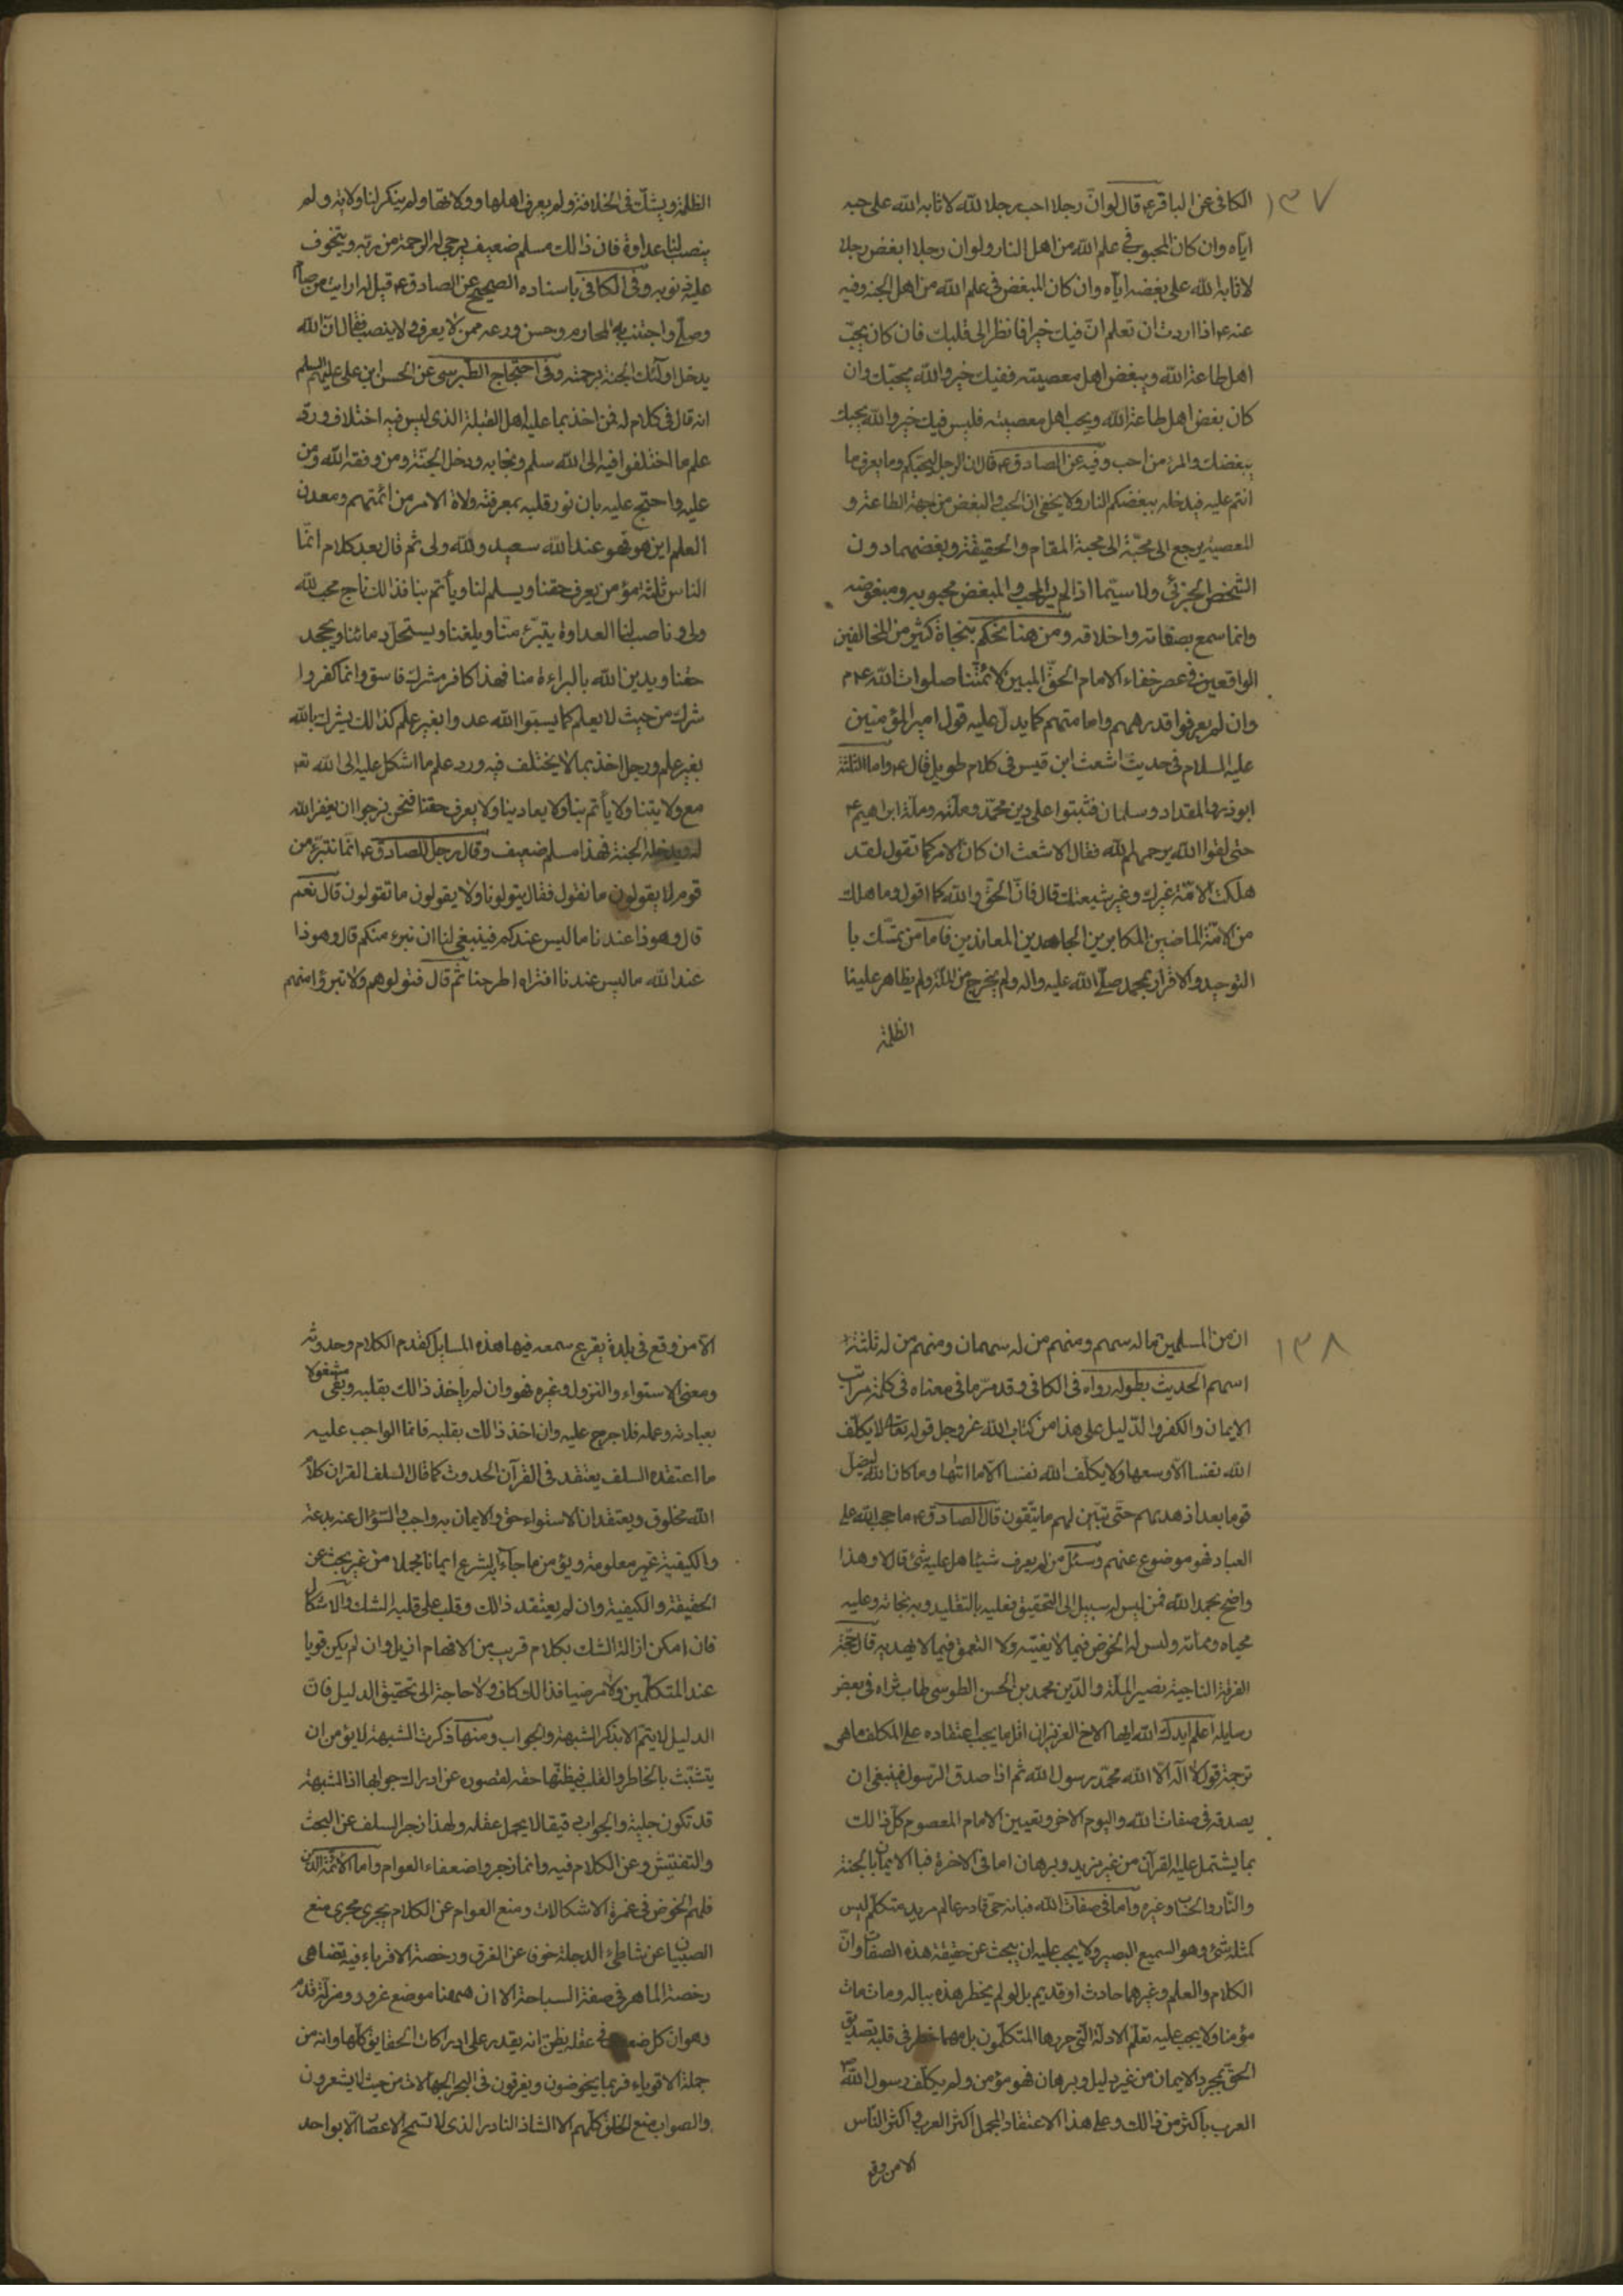 ١٣٧
الكافي عن الباقر ع قال لو ان رجلا احب رجلا لله لاثابه الله على حبه
اياه وان كان المحبوب في علم الله من اهل النار ولو ان رجلا ابغض رجلا
لاثابه الله على بغضه اياه وان كان المبغض في علم الله من اهل الجنة وفيه
عنه ع اذا اردت ان تعلم ان فيك خيرا فانظر الى قلبك فان كان يحب
اهل طاعة الله ويبغض اهل معصيته ففيك خير والله يحبك وان
كان يبغض اهل طاعة الله ويحب اهل معصيته فليس فيك خير والله
يبغضك والمرء من احب وفيه عن الصادق ع قال ان الرجل ليحبكم وما يعرف ما
انتم عليه فيدخله ببغضكم النار ولا يخفى ان الحب والبغض من جهة الطاعة و
المعصية يرجع الى محبة الى محبة المقام والحقيقة وبغضهما دون
الشخص الجزئي ولا سيما اذا لم ير المحب والمبغض محبوبه ومبغوضه
وانما سمع بصفاته واخلاقه ومن هنا نحكم بنجاة كثير من المخالفين
الواقعين في عصر خفاء الامام الحق المبين لائمتنا صلوات الله
وان لم يعرفوا قدرهم وامامتهم كما يدل عليه قول امير المؤمنين
عليه السلام في حديث اشعث ابن قيس في كلام طويل قال ع واما الثلثة
ابوذر والمقداد وسلمان فثبتوا على دين محمد وملته وملة ابراهيم ع
حتى لقوا الله يرحمهم الله فقال الاشعث ان كان الامر كما تقول لقد
هلكت الامة غيرك وغير شيعتك قال فان الحق والله كما اقول وما هلك
من الامة الماضين المكابرين الجاحدين المعاندين فاما من تمسك با
التوحيد والاقرار بمحمد صلى الله عليه واله ولم يخرج من الملة ولم يظاهر علينا
الظلمة
الظلمة ويشك في الخلافة ولم يعرف اهلها وولاتها ولم ينكر لنا ولاية ولم
ينصب لنا عداوة فان ذالك مسلم ضعيف يرجى له الرحمة من ربه ويتخوف
عليه ذنوبه وفي الكافي باسناده الصحيح عن الصادق ع قيل له ارايت من صام
وصلى واجتنب المحارم وحسن ورعه ممن لا يعرف ولا ينصب فقال ان الله
يدخل اولئك الجنة برحمته وفي احتجاج الطبرسي عن الحسن ابن علي عليهم السلم
انه قال في كلام له فمن اخذ بما عليه اهل القبلة الذي ليس فيه اختلاف ورد
علم ما اختلفوا فيه الى الله سلم ونجا به ودخل الجنة ومن وفقه الله ومن
عليه واحتج عليه بان نور قلبه بمعرفة ولاة الامر من ائمتهم ومعدن
العلم اين هو فهو عند الله سعيد ولله ولي ثم قال بعد كلام انما
الناس ثلثة مؤمن يعرف حقنا ويسلم لنا ويأتم بنا فذالك ناج محب لله
ولي وناصب لنا العداوة يتبرء منا ويلعننا ويستحل دمائنا ويجحد
حقنا ويدين الله بالبراءة منا فهذا كافر مشرك فاسق وانما كفر وا
شرك من حيث لا يعلم كما يسبوا الله عدوا بغير علم كذالك يشرك بالله
بغير علم ورجل اخذ بما لا يختلف فيه ورد علم ما اشكل عليه الى الله تعـ
مع ولايتنا ولا يأتم بنا ولا يعادينا ولا يعرف حقنا فنحن نرجوا ان يغفر الله
له ويدخله الجنة فهذا مسلم ضعيف وقال رجل للصادق ع انما نتبرء من
قوم لا يقولون ما نقول فقال يتولونا ولا يقولون ما تقولون قال نعم
قال وهوذا عندنا ما ليس عندكم فينبغي لنا ان نبرء منكم قال وهوذا
عند الله ما ليس عندنا افتراه اطرحنا ثم قال فتولوهم ولا تبرؤا منهم
١٣٨
ان من المسلمين ما له سهم ومنهم من له سهمان ومنهم من له ثلثة
اسهم الحديث بطوله رواه في الكافي وقد مر ما في معناه في كلمة مراتب
الايمان والكفر والدليل على هذا من كتاب الله عز وجل قوله تعالى لا يكلف
الله نفسا الا وسعها ولا يكلف الله نفسا الا ما اتها وما كان الله ليضل
قوما بعد اذ هديهم حتى تبين لهم ما يتقون قال الصادق ع ما حجب الله على
العباد فهو موضوع عنهم وسئل من لم يعرف شيئا هل عليه شئ قال لا وهذا
واضح بحمد الله فمن ليس له سبيل الى التحقيق فعليه بالتقليد وبه نجاته وعليه
محياه ومماته وليس له الخوض فيما لا يغنيه ولا التعمق فيما لا يهديه قال حجة
الفرقة الناجية نصير الملة والدين محمد بن الحسن الطوسي طاب ثراه في بعض
رسايله اعلم ايدك الله ايها الاخ العزيز ان اقل ما يجب اعتقاده على المكلف ما هو
ترجمة قول لا اله الا الله محمد رسول الله ثم اذا صدق الرسول فينبغي ان
يصدقه في صفات الله واليوم الاخر وتعيين الامام المعصوم كل ذالك
بما يشتمل عليه القرآن من غير مزيد وبرهان اما في الاخرة فبالايمان بالجنة
والنار والحساب وغيره واما في صفات الله فبانه حي قادر عالم مريد متكلم ليس
كمثله شئ وهو السميع البصير ولا يجب عليه ان يبحث عن حقيقة هذه الصفات وان
الكلام والعلم وغيرهما حادث او قديم بل لو لم يخطر هذه بباله ومات مات
مؤمنا ولا يجب عليه تعلم الادلة التي حررها المتكلمون بل مهما خطر في قلبه تصديق
الحق بمجرد الايمان من غير دليل وبرهان فهو مؤمن ولم يكلف رسول الله ص
العرب باكثر من ذالك وعلى هذا الاعتقاد المجمل اكثر العرب واكثر الناس
الا من وقع
الا من وقع في بلدة يقرع سمعه فيها هذه المسايل كقدم الكلام وحدوثه
ومعنى الاستواء والنزول وغيره فهو وان لم ياخذ ذالك بقلبه وبقى مشغولا
بعبادته وعمله فلا حرج عليه وان اخذ ذالك بقلبه فانما الواجب عليه
ما اعتقده السلف يعتقد في القرآن الحدوث كما قال السلف القران كلام
الله مخلوق ويعتقد ان الاستواء حق والايمان به واجب والسؤال عنه بدعة
والكيفية غير معلومة ويؤمن ما جاء به الشرع ايمانا مجملا من غير بحث عن
الحقيقة والكيفية وان لم يعتقد ذالك وقلب على قلبه الشك والاشكال
فان امكن ازالة الشك بكلام قريب من الافهام ازيل وان لم يكن قويا
عند المتكلمين ولا مرضيا فذالك كاف ولا حاجة الى تحقيق الدليل فان
الدليل لا يتم الا بذكر الشبهة والجواب ومنها ذكرت الشبهة لا يؤمن ان
يتشبث بالخاطر والقلب فيظنها حقه لقصوره عن ادراك جوابها اذا الشبهة
قد تكون جلية والجواب دقيقا لا يحمل عقله ولهذا زجر السلف عن البحث
والتفتيش وعن الكلام فيه وانما زجروا ضعفاء العوام واما الائمة الدين
فلهم الخوض في غمرة الاشكالات ومنع العوام عن الكلام يجري مجرى منع
الصبيان عن شاطئ الدجلة خوفا عن الغرق ورخصة الاقرباء فيه تضاهى
رخصة الماهر في صفة السباحة الا ان ههنا موضع غرور ومزلة قدم
وهو ان كل ضعيف في عقله يظن انه يقدر على ادراكات الحقايق كلها وانه من
جملة الاقوياء فربما يخوضون ويغرقون في البحر الجهالات من حيث لا يشعرون
والصواب منع الخلق كلهم الا الشاذ النادر الذي لا تسمح الاعصار الا بواحد